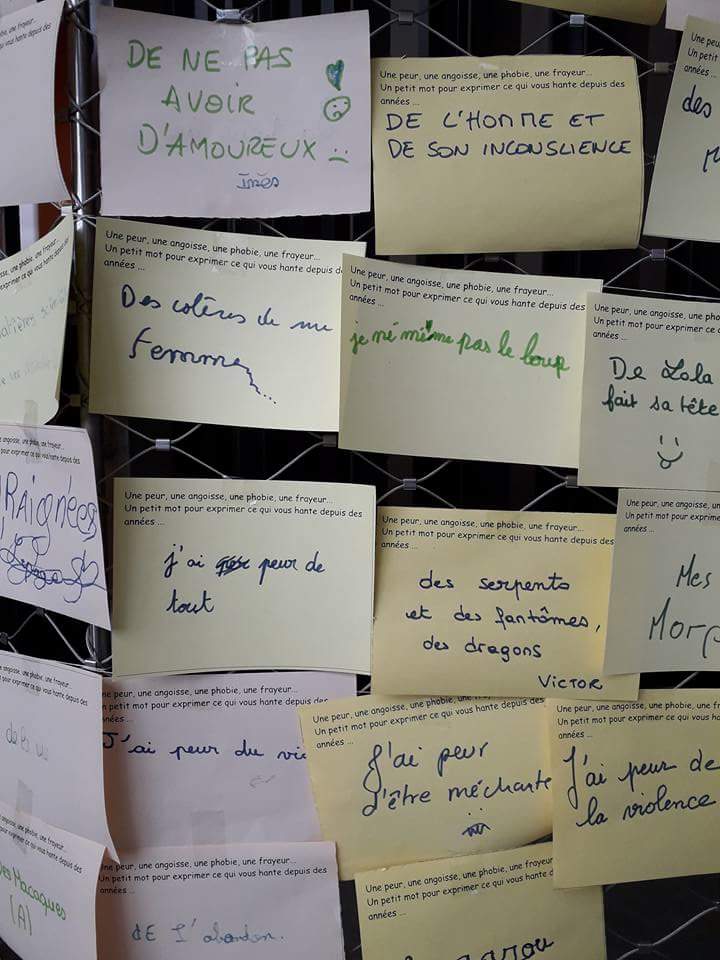 DE NE PAS
AVOIR
D'AMOUREUX :(
Inès
Une peur, une angoisse, une phobie, une frayeur...
Un petit mot pour exprimer ce qui vous hante depuis des
années ...
DE L'HOMME ET
DE SON INCONSCIENCE
Une peur, une
Un petit mot
années ...
des
Une peur, une angoisse, une phobie, une frayeur...
Un petit mot pour exprimer ce qui vous hante depuis d
années ...
Des colères de ma
Femme....
Une peur, une angoisse, une phobie, une frayeur...
Un petit mot pour exprimer ce qui vous hante depuis des
années ...
je mé même pas le loup
Une peur, une angoisse, une pho
Un petit mot pour exprimer ce
années ...
De Lola
fait sa tête
une phobie, une frayeur...
ce qui vous hante depuis des
RAignées
Une peur, une angoisse, une phobie, une frayeur...
Un petit mot pour exprimer ce qui vous hante depuis des
années ...
j'ai peur de
tout
Une peur, une angoisse, une phobie, une frayeur...
Un petit mot pour exprimer ce qui vous hante depuis des
années ...
des serpents
et des fantômes,
des dragons
VICTOR
Une peur, une angoisse, un
Un petit mot pour exprime
années ...
Mes
Morp
une angoisse, une phobie, une frayeur...
mot pour exprimer ce qui vous hante depuis des
ne peur, une angoisse, une phobie, une frayeur...
Un petit mot pour exprimer ce qui vous hante depuis des
nées ...
J'ai peur du
Une peur, une angoisse, une phobie, une
Un petit mot pour exprimer ce qui vous hante depuis des
années ...
J'ai peur
d'être méchante
Une peur, une angoisse, une phobie, une frayeur...
Un petit mot pour exprimer ce qui vous hante de
années ...
J'ai peur de
la violence
une angoisse, une phobie, une frayeur...
pour exprimer ce qui vous hante depuis des
Des Macaques
(A)
ne peur, une angoisse, une phobie, une frayeur...
Un petit mot pour exprimer ce qui vous hante depuis des
années ...
dE L'abandon.
Une peur, une angoisse, une phobie, une frayeur
Un petit mot pour exprimer ce qui vous hante d
années ...
garou